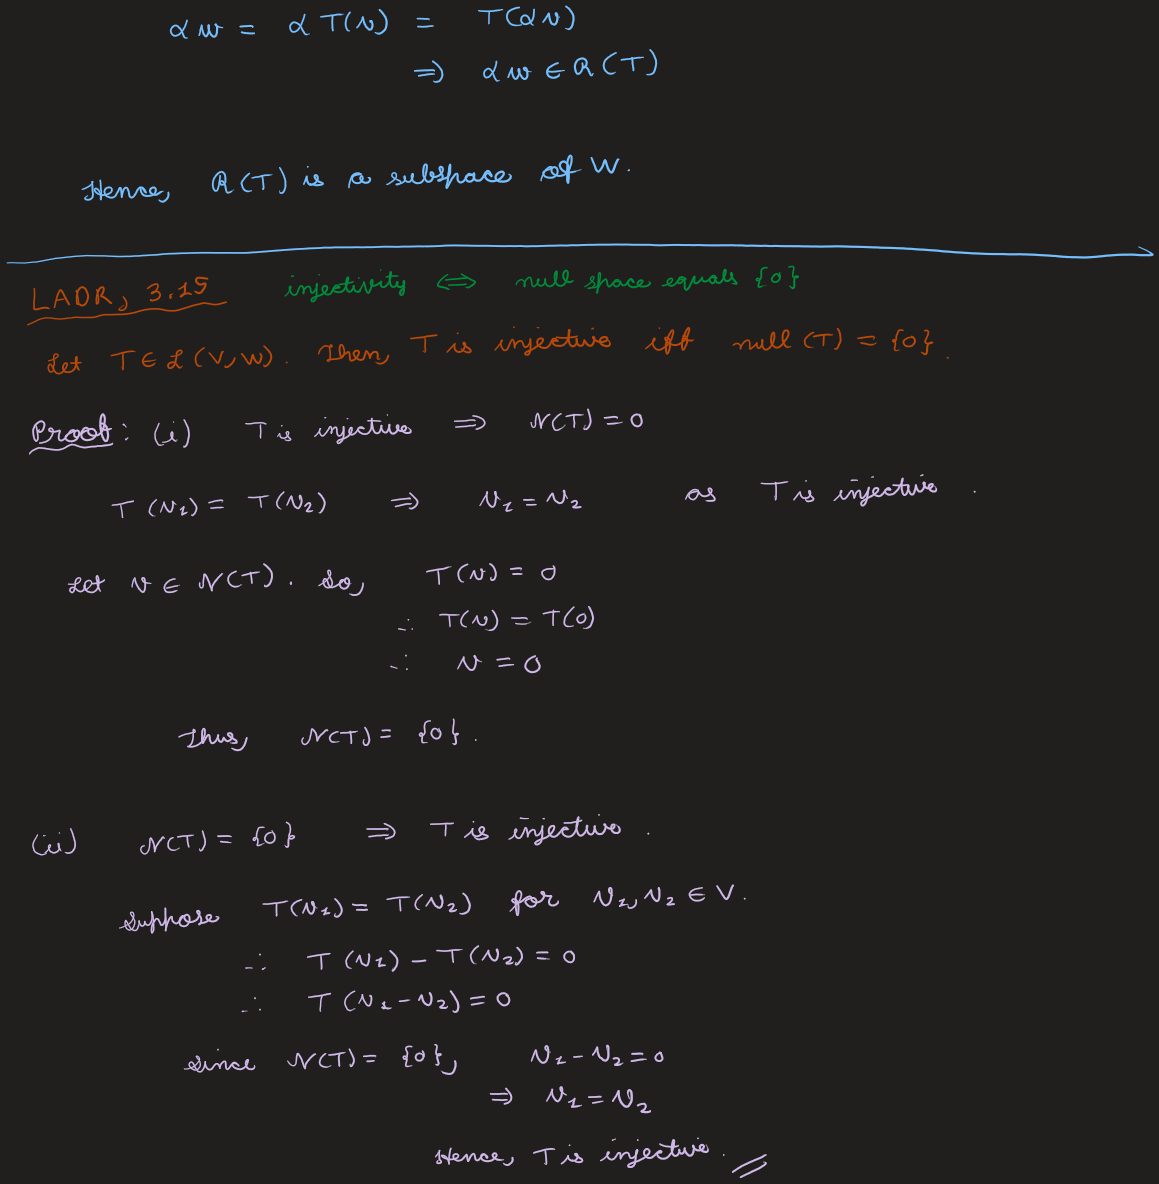 αw = αT(v) = T(αv)
⇒ αw ∈ R(T)
Hence, R(T) is a subspace of W.
LADR, 3.15 injectivity ⇔ null space equals {0}
Let T ∈ L(V,W). Then, T is injective iff null(T) = {0}.
Proof: (i) T is injective ⇒ N(T) = 0
T(v₁) = T(v₂) ⇒ v₁ = v₂ as T is injective.
Let v ∈ N(T). So, T(v) = 0
∴ T(v) = T(0)
∴ v = 0
Thus, N(T) = {0}.
(ii) N(T) = {0} ⇒ T is injective.
Suppose T(v₁) = T(v₂) for v₁, v₂ ∈ V.
∴ T(v₁) - T(v₂) = 0
∴ T(v₁ - v₂) = 0
Since N(T) = {0}, v₁ - v₂ = 0
⇒ v₁ = v₂
Hence, T is injective.